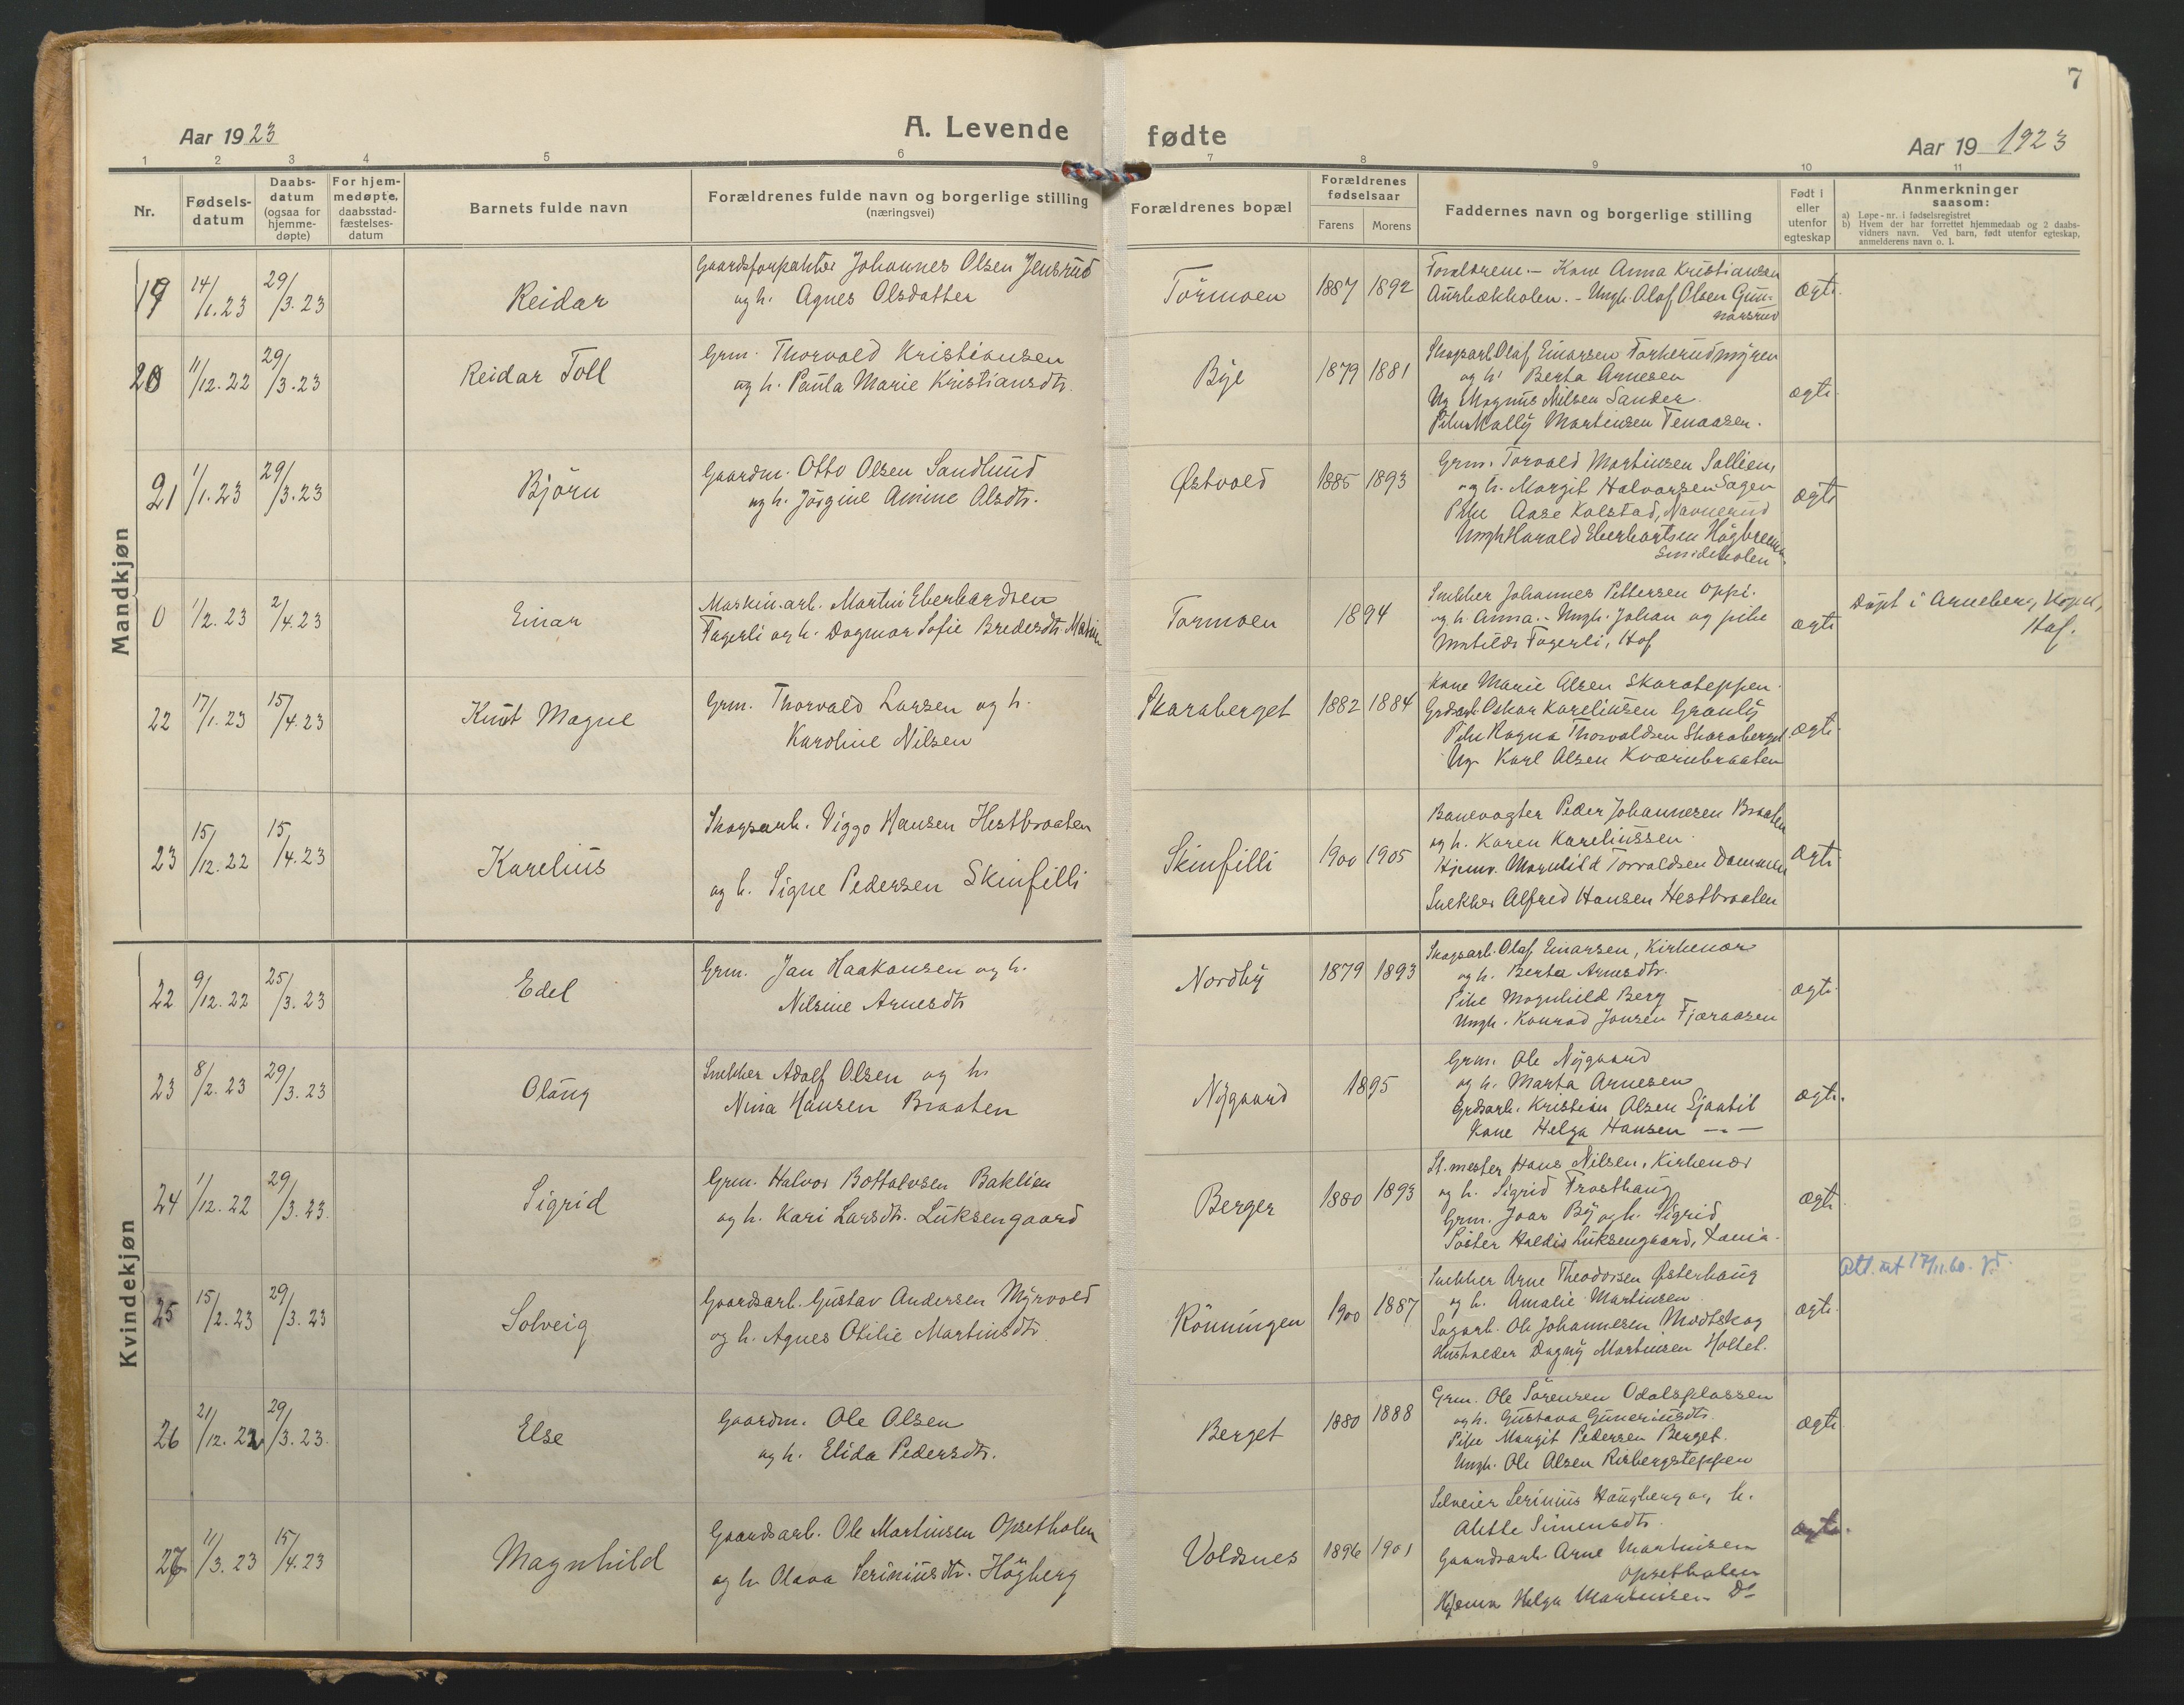 7
Aar 1923
A. Levende fødte
Aar 19 1923
1 2 3 4 5 6 7 8 9 10 11
Nr.
Fødsels-
datum
Daabs-
datum
(ogsaa for
hjemme-
døpte)
For hjem-
medøpte,
daabsstad-
fæstelses-
datum
Barnets fulde navn
Forældrenes fulde navn og borgerlige stilling
(næringsvei)
Forældrenes bopæl
Forældrenes
fødselsaar
Farens Morens
Faddernes navn og borgerlige stilling
Født i
eller
utenfor
egteskap
Anmerkninger
saasom:
a) Løpe-nr. i fødselsregistret
b) Hvem der har forrettet hjemmedaab og 2 daabs-
vidners navn. Ved barn, født utenfor egteskap,
anmelderens navn o. l.
Mandkjøn
19 14/1.23 29/3.23 Reidar
Gaardsforpakter Johannes Olsen Jensrud
og h. Agnes Olsdatter
Törmoen 1887 1892
Forældrene. - Kone Anna Kristiansen
Aurbækholen. - Ungk. Olaf Olsen Gun-
narsrud
ægte.
20 11/12.22 29/3.23 Reidar Toll
Grm. Thorvald Kristiansen
og h. Paula Marie Kristiansdtr.
Bye 1879 1881
Skogsarb. Olaf Einarsen Torkerudmyren
og h. Berta Arnesen
Ug. Magnus Nilsen Sander.
Pike Mally Martinsen Tenaasen.
ægte.
21 1/1.23 29/3.23 Bjørn
Gaardm. Otto Olsen Sandlund
og h. Jörgine Amine Olsdtr.
Østvold 1885 1893
Grm. Torvald Martinsen Sollien,
og h. Margit Halvorsen Sagen
Pike Aase Kolstad, Navnerud
Ungk Harald Eberhartsen Högbrenna
Smideholen.
ægte
0 1/2.23 2/4.23 Einar
Maskin.arb. Martin Eberhardsen
Fagerli og h. Dagmar Sofie Bredesdtr.
Tormoen 1894
Snekker Johannes Pettersen Oppi.
og h. Anna. - Ungk. Johan og pike
Matilde Fagerli, Hof
ægte
Döpt i Arneberg
Hof.
22 17/1.23 15/4.23 Knut Magne
Grm. Thorvald Larsen og h.
Karoline Nilsen
Skaraberget 1882 1884
Kone Marie Olsen Skarateppen.
Grdsarb. Oskar Karelinsen Granly
Pike Ragna Thorvaldsen Skaraberget
Ug. Karl Olsen Kværnbraaten
ægte.
23 15/12.22 15/4.23 Karelius
Skogsarb. Viggo Hansen Hestbraaten
og h. Signe Pedersen Skinfilli
Skinfilli 1900 1905
Banevogter Peder Johannesen Braaten
og h. Karen Kareliussen.
Hjemv. Magnhild Torvaldsen Dammen
Snekker Alfred Hansen Hestbraaten
ægte
Kvindekjøn
22 9/12.22 25/3.23 Edel
Grm. Jan Haakonsen og h.
Nilsine Arnesdtr
Nordby 1879 1893
Skogsarb. Olaf Einarsen, Kirkenær
og h. Berta Arnesdtr.
Pike Magnhild Berg
Ungk. Konrad Jonsen Fjæraasen
ægte.
23 8/2.23 29/3.23 Olaug
Snekker Adolf Olsen og h.
Nina Hansen Braaten
Nygaard 1895
Grm. Ole Nygaard
og h. Marta Arnesen
Grdsarb. Kristian Olsen Sjaatil
Kone Helga Hansen - " -
ægte.
24 1/12.22 29/3.23 Sigrid
Grm. Halvor Bottolvsen Baklien
og h. Kari Larsdtr. Luksengaard
Berger 1880 1893
St.mester Hans Nilsen, Kirkenær
og h. Sigrid Frosthaug
Grm. Joar By og h. Sigrid
Söster Haldis Luksengaard,
ægte
25 15/2.23 29/3.23 Solveig
Gaardsarb. Gustav Andersen Myrvold
og h. Agnes Otilie Martinsdtr
Rönningen 1900 1887
Snekker Arne Theodorsen Østerhaug
og h. Amalie Martinsen
Sagarb. Ole Johannesen Modtskog
Husholder Dagny Martinsen Holtet.
ægte.
Att. ut 17/11.60.
26 21/12.22 29/3.23. Else
Gaardm. Ole Olsen
og h. Elida Pedersdtr.
Berget 1880 1888
Grm. Ole Sörensen Odalsplassen
og h. Gustava Guneriusdtr.
Pike Margit Pedersen Berget.
Ungk. Ole Olsen Risbergsteppen
ægte.
27 11/3.23 15/4.23 Magnhild
Gaardsarb. Ole Martinsen Opsetholen
og h. Olava Seriniusdtr. Högberg
Voldsnes 1896 1901
Selveier Serinius Haugberg og h.
Alette Simensdtr.
Gaardsarb. Arne Martinsen
Opsetholen
Hjemv Helga Martinsen Do
ægte.